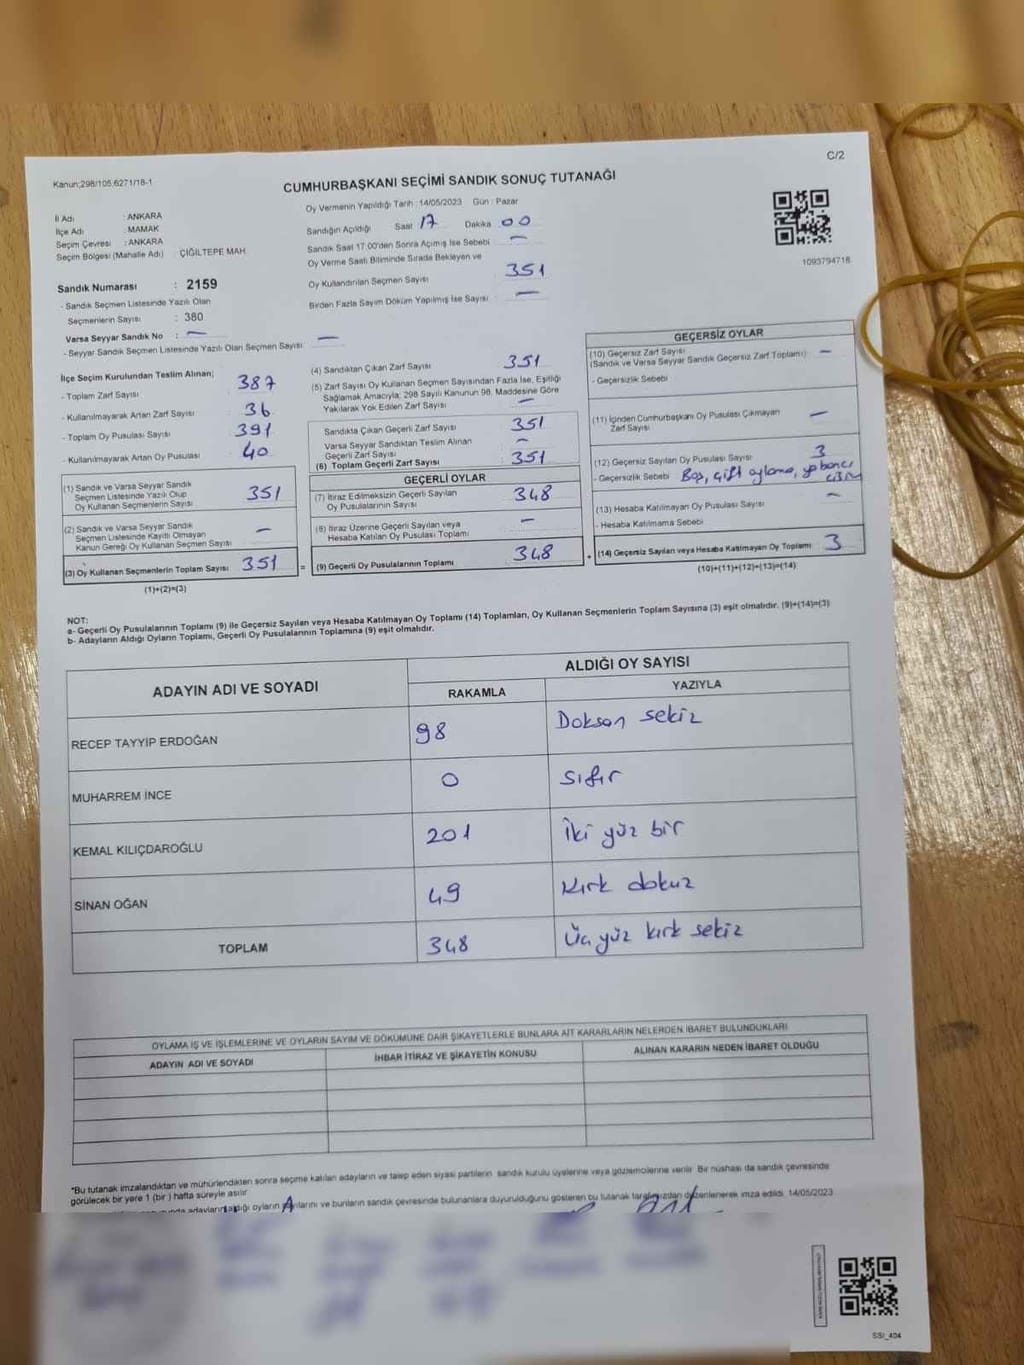 Kanun;298/105;6271/18-1
C/2
CUMHURBAŞKANI SEÇİMİ SANDIK SONUÇ TUTANAĞI
Oy Vermenin Yapıldığı Tarih : 14/05/2023 Gün : Pazar
İl Adı : ANKARA
İlçe Adı : MAMAK
Seçim Çevresi : ANKARA
Seçim Bölgesi (Mahalle Adı) : ÇİĞİLTEPE MAH
Sandık Numarası : 2159
- Sandık Seçmen Listesinde Yazılı Olan
Seçmenlerin Sayısı : 380
Varsa Seyyar Sandık No : —
- Seyyar Sandık Seçmen Listesinde Yazılı Olan Seçmen Sayısı: —
Sandığın Açıldığı Saat 17 Dakika 00
Sandık Saat 17:00'den Sonra Açılmış İse Sebebi —
Oy Verme Saati Bitiminde Sırada Bekleyen ve
Oy Kullandırılan Seçmen Sayısı 351
Birden Fazla Sayım Döküm Yapılmış İse Sayısı —
1093794718
İlçe Seçim Kurulundan Teslim Alınan;
- Toplam Zarf Sayısı 387
- Kullanılmayarak Artan Zarf Sayısı 36
- Toplam Oy Pusulası Sayısı 391
- Kullanılmayarak Artan Oy Pusulası 40
(1) Sandık ve Varsa Seyyar Sandık
Seçmen Listesinde Yazılı Olup
Oy Kullanan Seçmenlerin Sayısı 351
(2) Sandık ve Varsa Seyyar Sandık
Seçmen Listesinde Kayıtlı Olmayan
Kanun Gereği Oy Kullanan Seçmen Sayısı —
(3) Oy Kullanan Seçmenlerin Toplam Sayısı 351 =
(1)+(2)=(3)
(4) Sandıktan Çıkan Zarf Sayısı 351
(5) Zarf Sayısı Oy Kullanan Seçmen Sayısından Fazla İse, Eşitliği
Sağlamak Amacıyla; 298 Sayılı Kanunun 98. Maddesine Göre
Yakılarak Yok Edilen Zarf Sayısı —
Sandıkta Çıkan Geçerli Zarf Sayısı 351
Varsa Seyyar Sandıktan Teslim Alınan
Geçerli Zarf Sayısı —
(6) Toplam Geçerli Zarf Sayısı 351
GEÇERLİ OYLAR
(7) İtiraz Edilmeksizin Geçerli Sayılan
Oy Pusulalarının Sayısı 348
(8) İtiraz Üzerine Geçerli Sayılan veya
Hesaba Katılan Oy Pusulası Toplamı —
(9) Geçerli Oy Pusulalarının Toplamı 348 +
GEÇERSİZ OYLAR
(10) Geçersiz Zarf Sayısı
(Sandık ve Varsa Seyyar Sandık Geçersiz Zarf Toplamı) —
- Geçersizlik Sebebi
(11) İçinden Cumhurbaşkanı Oy Pusulası Çıkmayan
Zarf Sayısı —
(12) Geçersiz Sayılan Oy Pusulası Sayısı 3
- Geçersizlik Sebebi Boş, çift oylama, yabancı
(13) Hesaba Katılmayan Oy Pusulası Sayısı —
- Hesaba Katılmama Sebebi
(14) Geçersiz Sayılan veya Hesaba Katılmayan Oy Toplamı 3
(10)+(11)+(12)+(13)=(14)
NOT:
a- Geçerli Oy Pusulalarının Toplamı (9) ile Geçersiz Sayılan veya Hesaba Katılmayan Oy Toplamı (14) Toplamları, Oy Kullanan Seçmenlerin Toplam Sayısına (3) eşit olmalıdır. (9)+(14)=(3)
b- Adayların Aldığı Oyların Toplamı, Geçerli Oy Pusulalarının Toplamına (9) eşit olmalıdır.
ADAYIN ADI VE SOYADI ALDIĞI OY SAYISI
RAKAMLA YAZIYLA
RECEP TAYYİP ERDOĞAN 98 Doksan sekiz
MUHARREM İNCE 0 sıfır
KEMAL KILIÇDAROĞLU 201 İki yüz bir
SİNAN OĞAN 49 Kırk dokuz
TOPLAM 348 Üç yüz kırk sekiz
OYLAMA İŞ VE İŞLEMLERİNE VE OYLARIN SAYIM VE DÖKÜMÜNE DAİR ŞİKAYETLERLE BUNLARA AİT KARARLARIN NELERDEN İBARET BULUNDUKLARI
ADAYIN ADI VE SOYADI İHBAR İTİRAZ VE ŞİKAYETİN KONUSU ALINAN KARARIN NEDEN İBARET OLDUĞU
*Bu tutanak imzalandıktan ve mühürlendikten sonra seçime katılan adayların ve talep eden siyasi partilerin sandık kurulu üyelerine veya gözlemcilerine verilir. Bir nüshası da sandık çevresinde
görülecek bir yere 1 (bir) hafta süreyle asılır
adayların aldığı oyların ve bunların sandık çevresinde bulunanlara duyurulduğunu gösteren bu tutanak tarafımızdan düzenlenerek imza edildi. 14/05/2023
SSİ_404